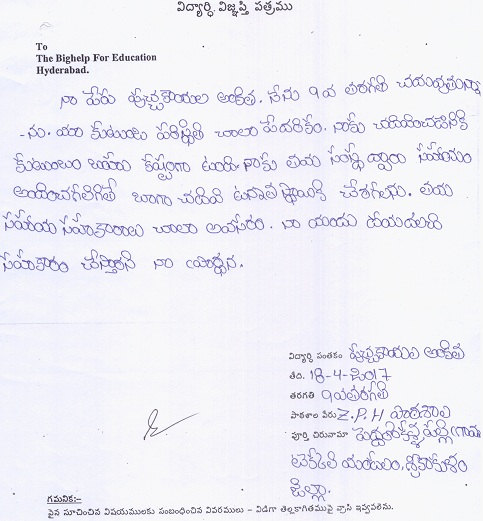 విద్యార్ధి విజ్ఞప్తి పత్రము
To
The Bighelp For Education
Hyderabad.
నా పేరు పుచ్చకాయల అంకిత. నేను 9వ తరగతి చదువుతున్నా
-ను. మా కుటుంబ పరిస్థితి చాలా పేదరికం. నాకు చదివించడానికి
కుటుంబం బహు కష్టంగా ఉంది. నాకు మీయ సంస్థ ద్వారా సహాయం
అందించగలిగితే బాగా చదివి ఉన్నత స్థాయికి చేరగలను. మీయ
సహాయ సహకారాలు చాలా అవసరం. నా యందు దయదలచి
సహకారం చేస్తారని నా యొక్క ప్రార్ధన.
విద్యార్ధి సంతకం పుచ్చకాయల అంకిత
తేది. 18-4-2017
తరగతి 9వ తరగతి
పాఠశాల పేరు Z.P.H పాఠశాల
పూర్తి చిరునామా (గ్రామం
టెక్కలి మండలం, శ్రీకాకుళం
జిల్లా.
గమనిక:-
పైన సూచించిన విషయములకు సంబంధించిన వివరములు – విడిగా తెల్లకాగితముపై వ్రాసి ఇవ్వవలెను.